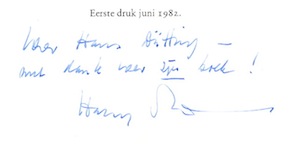 Eerste druk juni 1982.
Voor Hans Dütting —
met dank voor zijn boek!
Harry